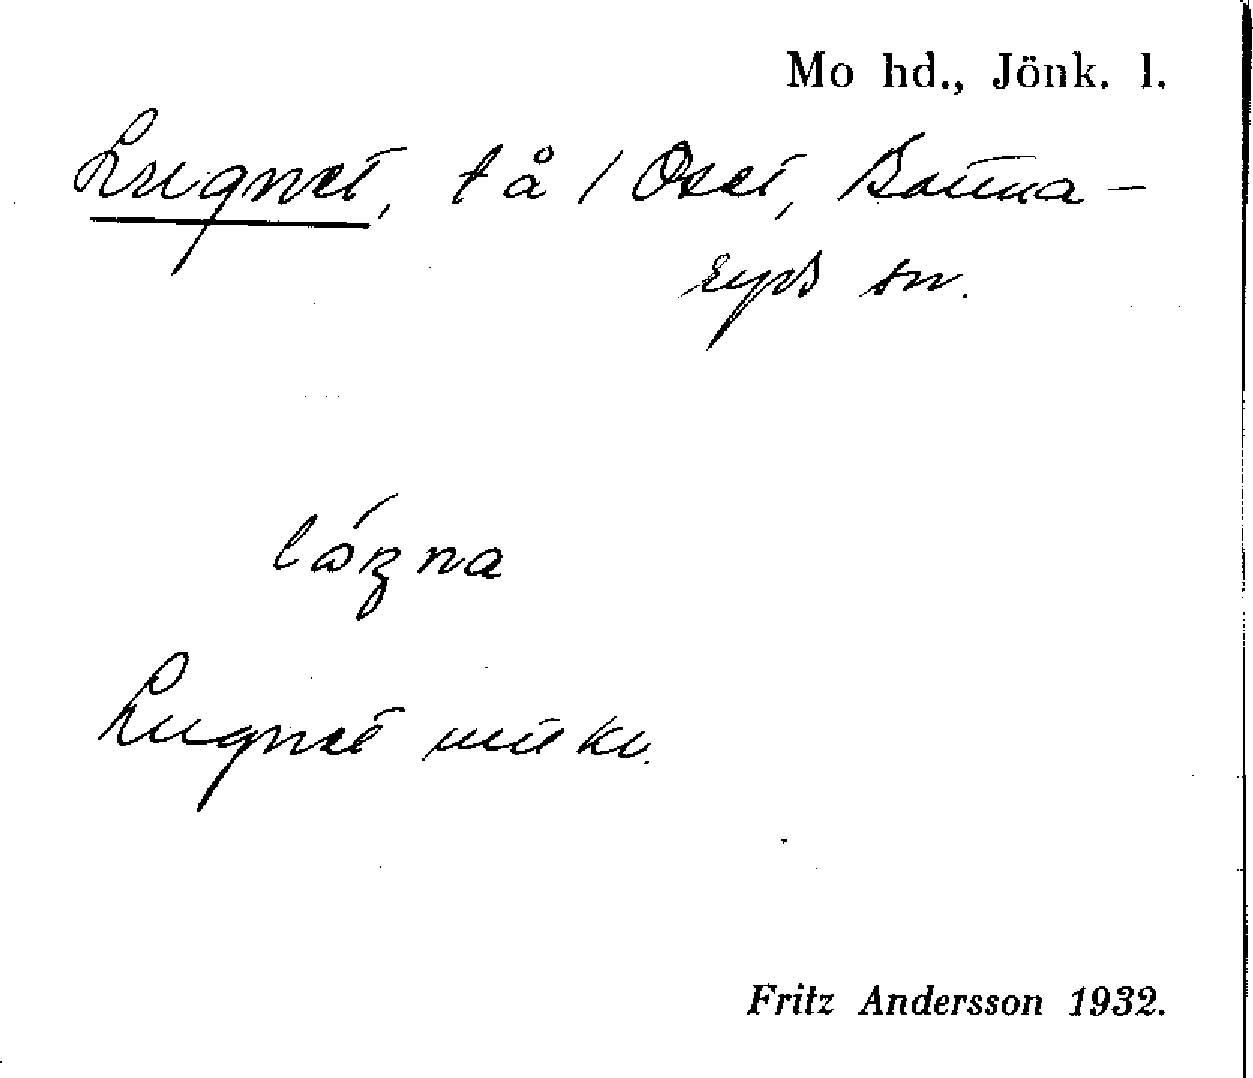 Mo hd., Jönk. l.
Lugnet, t å / Oset, Bottna-
ryds sn.
lázna
Lugnet utskr.
Fritz Andersson 1932.